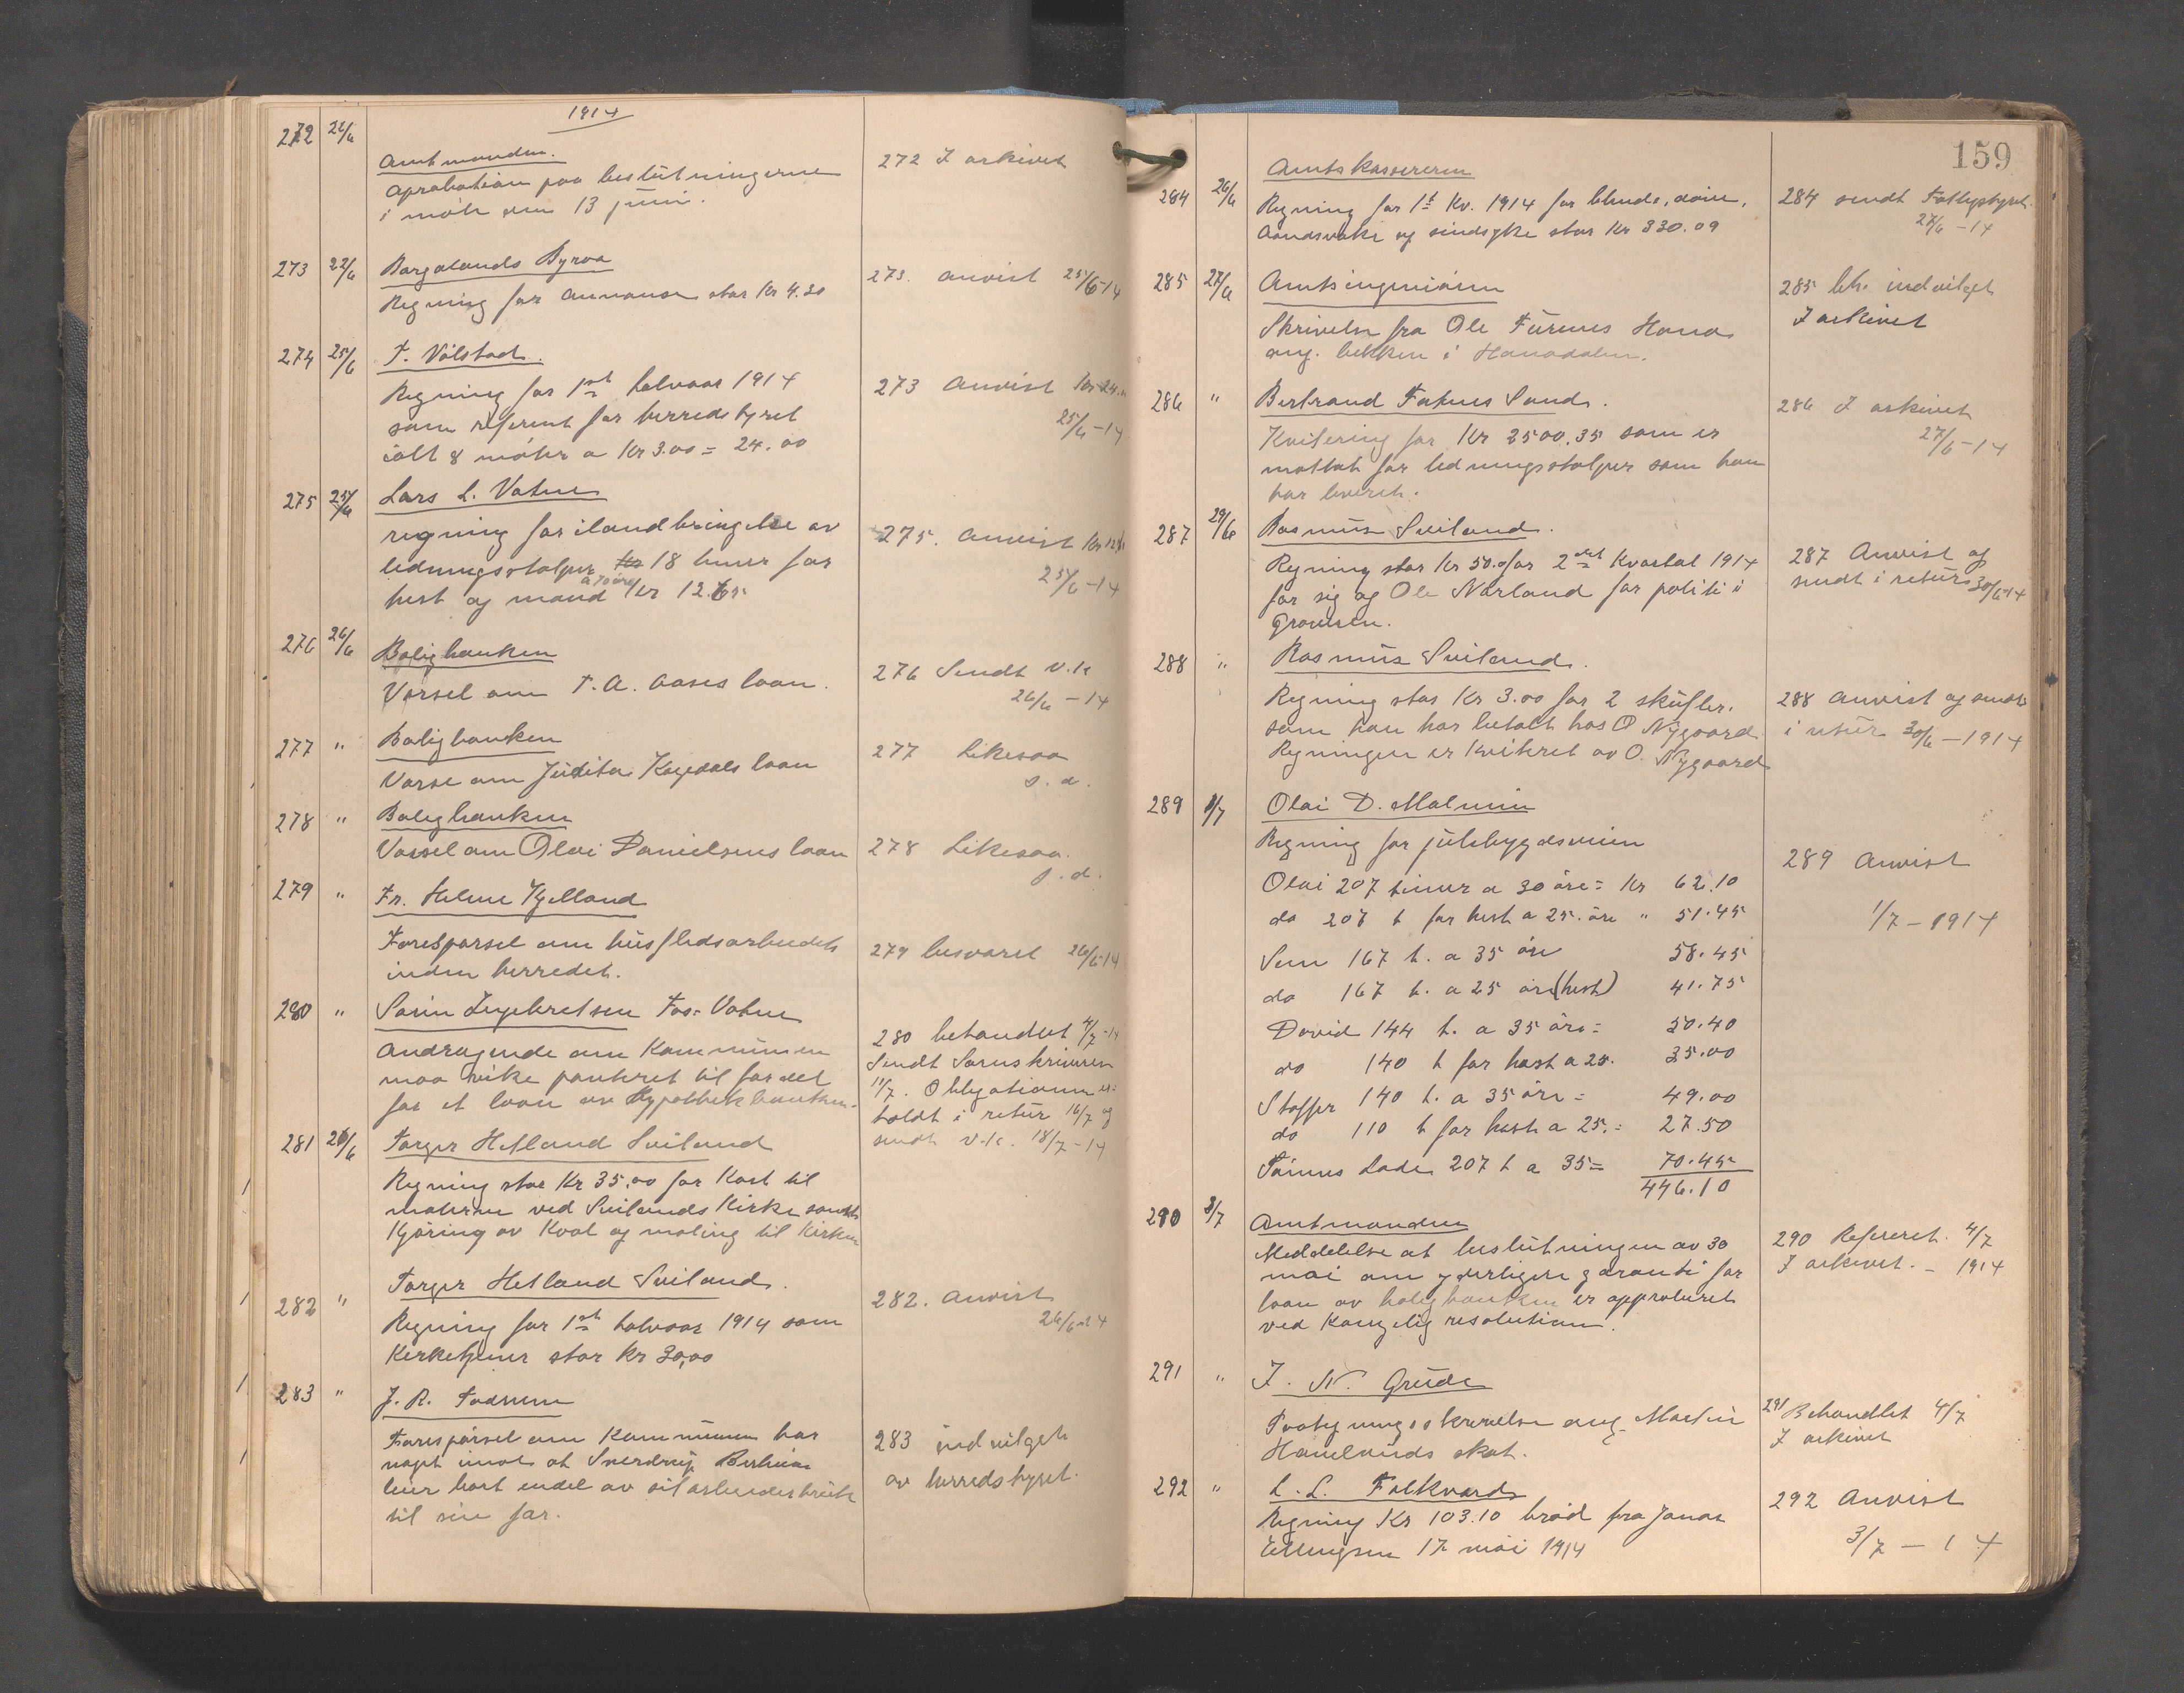 1914
272 22/6 Amtmanden. 272 I arkivet
Aprobation paa beslutningerne
i møte den 13 juni.
273 22/6 273. anvist 25/6-14
Regning for Annonse stor Kr 4.20
274 25/6 T. Vølstad.
Regning for 1ste halvaar 1914 273 Anvist kr 24.
som referent for herredstyret 25/6-14
ialt 8 møter a Kr 3.00 = 24.00
275 25/6 Lars L. Vatne
regning for ilandbringelse av 275. Anvist
ledningsstolper 18 timer for 25/6-14
a 70 øre
hest og mand Kr 12.65
276 26/6 Boligbanken 276 Sendt v.k
Varsel om T. A. Aases laan. 26/6-14
277 " Boligbanken 277 Likesaa
Varse om Judita Kagedals laan s. d.
278 " Boligbanken
Varsel om Olai Danielsens laan 278 Likesaa.
s. d.
279 " Fr. Helene Kjelland
Forespørsel om husflidsarbeidets 279 besvaret 26/6-14
inden herredet.
280 " Sørin Ingebretsen Fos-Vatne
Andragende om Kommunen 280 behandlet 4/7-14
maa vike panteret til fordel Sendt Sorenskriveren
for et laan av Hypothekbanken. 11/7. Obligationen er-
holdt i retur 16/7 og
sendt v.k. 18/7-14
281 26/6 Torger Hetland Sviland
Regning stor Kr 35.00 for Kost til
malerne ved Svilands Kirke samt
Kjøring av Koal og maling til Kirken
Torger Hetland Sviland.
282 " 282. Anvist
Regning for 1ste halvaar 1914 som 26/6-14
Kirketjener stor Kr 30,00
283 " J. R. Fadnun
Forespørsel om Kommunen har 283 indvilget
noget imot at Sverdrup av herredstyret.
leier bort endel av sit arbeiderbruk
til sin far.
159
Amtskassereren
284 26/6 Regning for 1ste Kv. 1914 for blinde, døve, 284 sendt Fattigstyret.
aandsvake og sindsyke stor Kr 330.09 27/6-14
285 27/6 Amtsingeniøren 285 indvilget
Skrivelse fra Ole Furenes Hana I arkivet
ang. bekken i Hanadalen.
286 " Bertrand Sands. 286 I arkivet
Kvitering for Kr 2500.35 som er 27/6-14
mottat for ledningsstolper som han
har leveret.
287 29/6 Rasmus Sviland.
Regning stor Kr 50. for 2det Kvartal 1914 287 Anvist og
for sig og Ole Norland for politi i sendt i retur 30/6-14
Gravesen.
288 " Rasmus Sviland.
Regning stor Kr 3.00 for 2 skufler. 288 Anvist og sendt
som han har betalt hos O Nygaard i retur 30/6-1914
Regningen er Kvitteret av O. Nygaard
289 1/7 Olai D. Malmin
Regning for julebygdsveien 289 Anvist
Olai 207 timer a 30 øre = Kr 62.10
do 207 t for hest a 25. øre " 51.45 1/7-1914
Sven 167 t. a 35 øre 58.45
do 167 t. a 25 øre (hest) 41.75
David 144 t. a 35 øre = 50.40
do 140 t for hest a 25. 35.00
Staffer 140 t. a 35 øre = 49.00
do 110 t for hest a 25. = 27.50
Tønnes Lade 207 t a 35 = 70.45
446.10
290 3/7 Amtmanden
Meddelelse at beslutningen av 30 290 Refereret. 4/7
mai om yderligere garanti for I arkivet. - 1914
laan av boligbanken er approberet
ved Kongelig resolution.
291 " J. N. Grude
Paategningsskrivelse ang. Martin 291 Behandlet 4/7
skat. I arkivet
292 " L. L. Folkvord
Regning Kr 103.10 brød fra Jonas 292 Anvist
Ellingsen 17 mai 1914 3/7-14